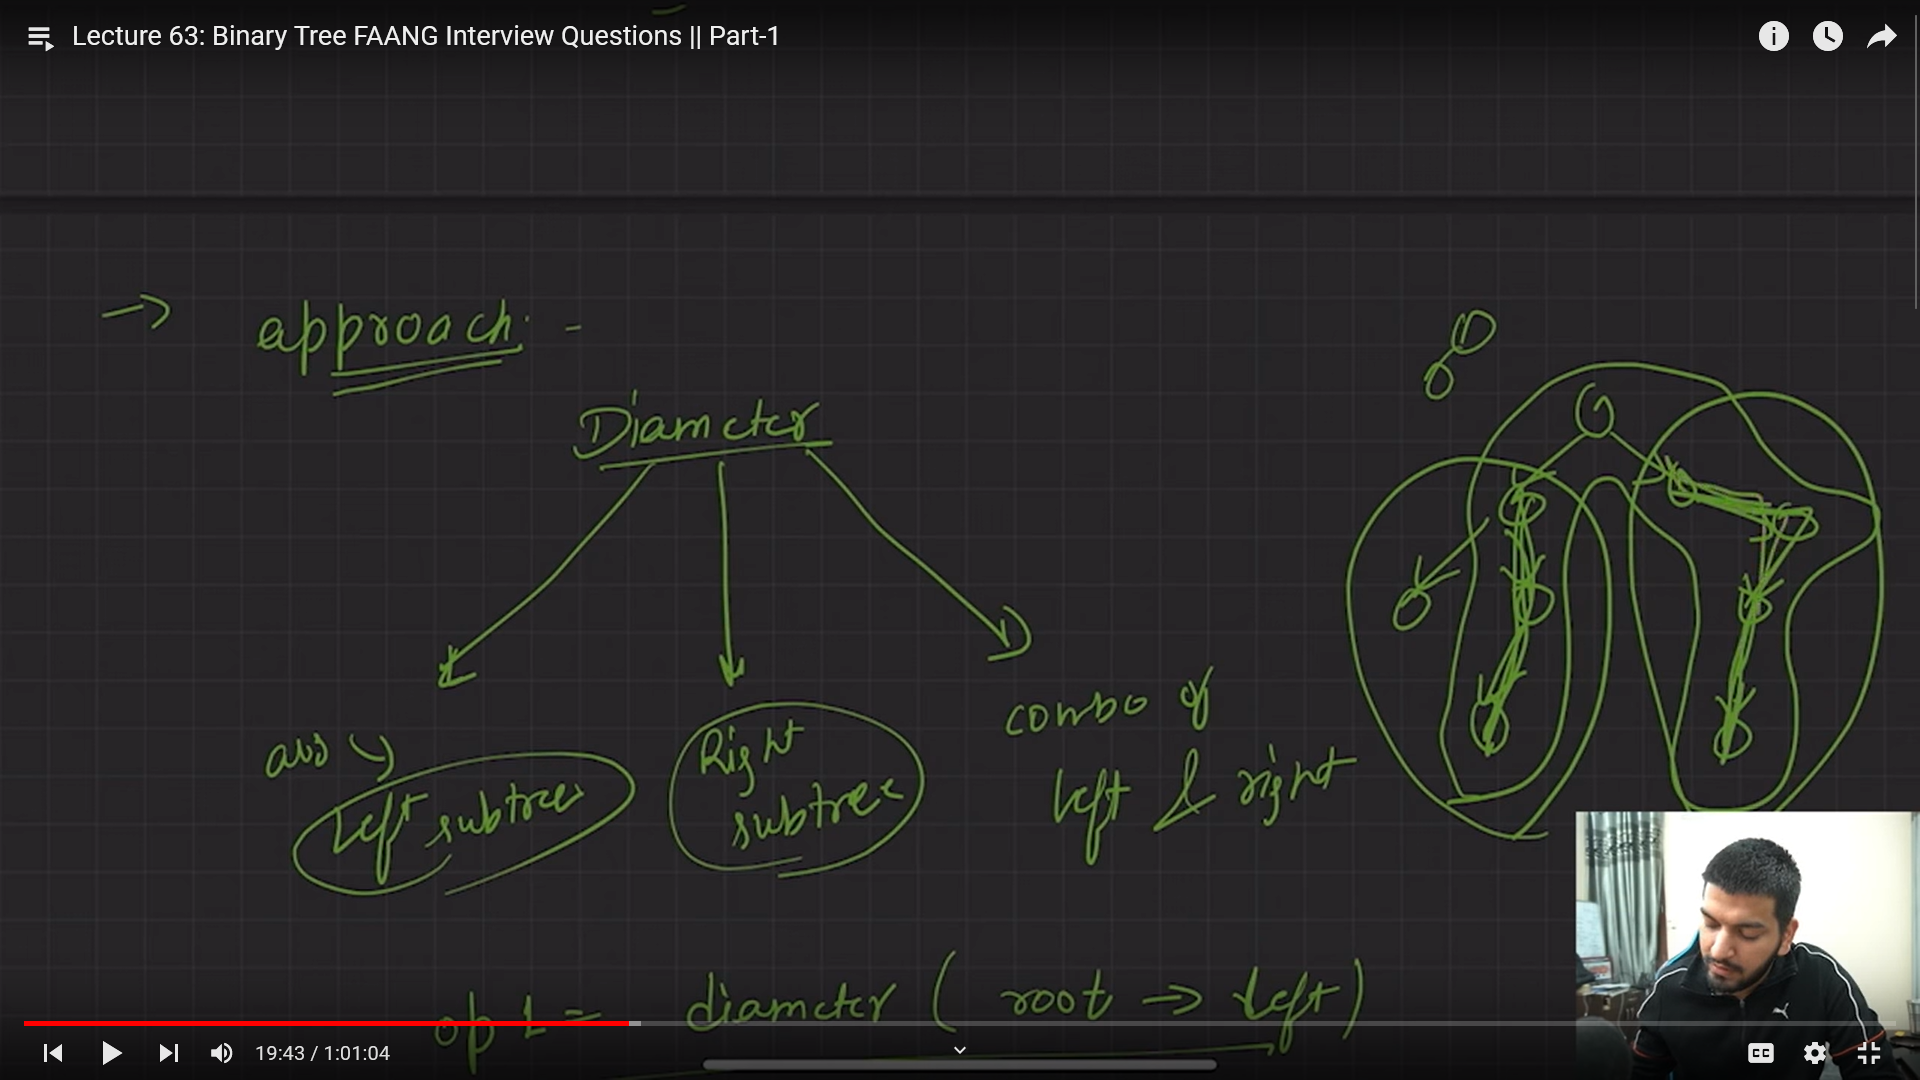 Lecture 63: Binary Tree FAANG Interview Questions || Part-1
→ approach: -
Diameter
ans
Left subtree
Right
subtree
combo of
left & right
op 1 = diameter ( root → left )
19:43 / 1:01:04
CC